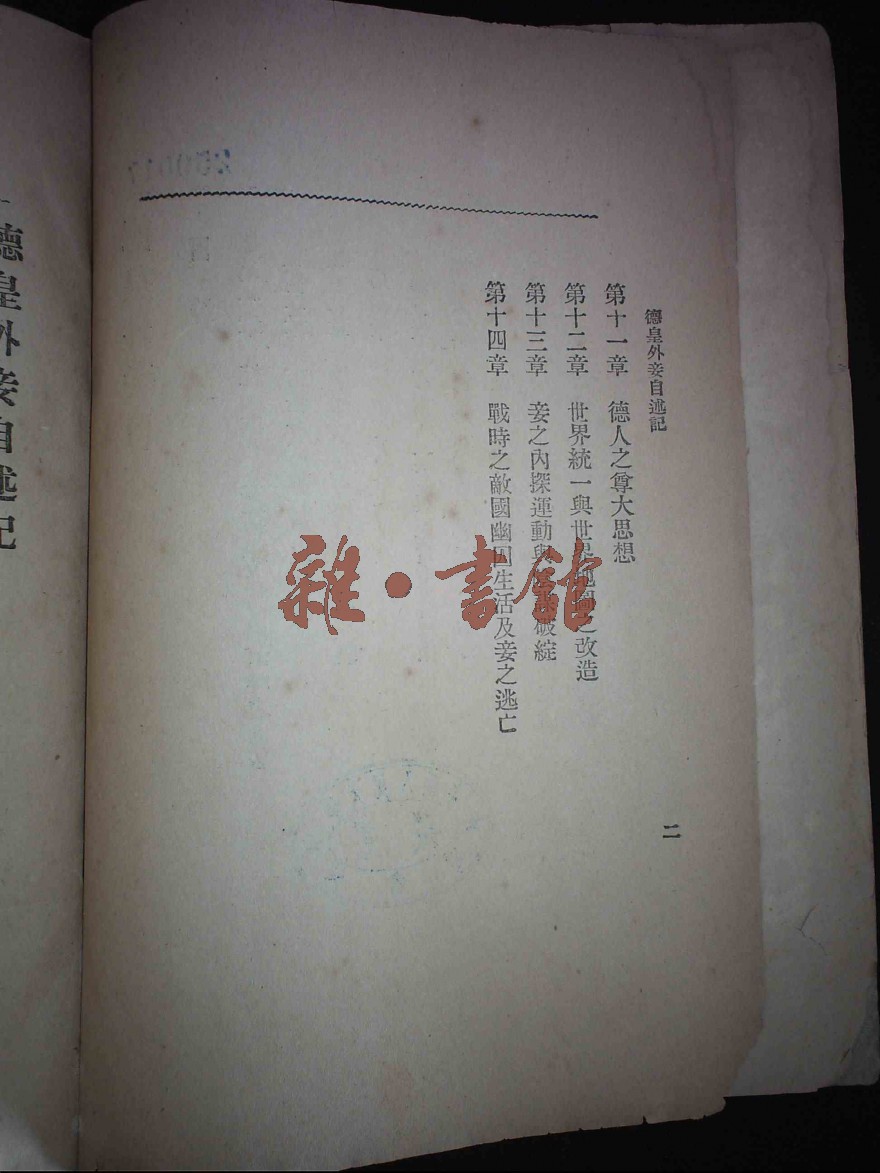 德皇外妾自述記
第十一章 德人之尊大思想
第十二章 世界統一與世界地圖之改造
第十三章 妾之內探運動與破綻
第十四章 戰時之敵國幽囚生活及妾之逃亡
二
德皇外妾自述記
雜·書館